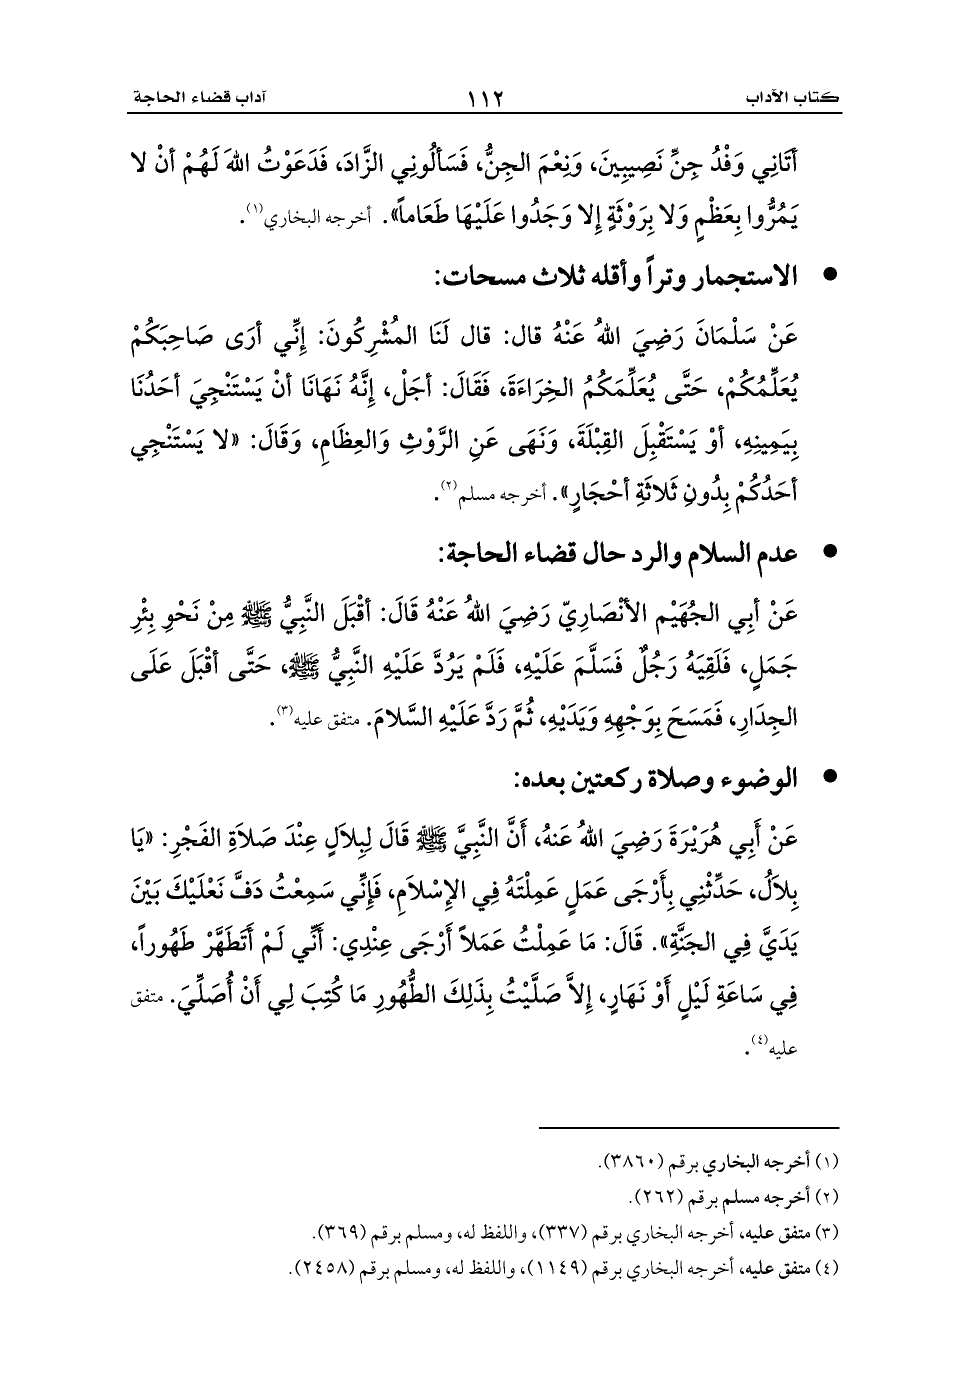 كتاب الآداب ١١٢ آداب قضاء الحاجة
أتَانِي وَفْدُ جِنِّ نَصِيبِينَ، وَنِعْمَ الجِنُّ، فَسَألُونِي الزَّادَ، فَدَعَوْتُ اللهَ لَهُمْ أنْ لا
يَمُرُّوا بِعَظْمٍ وَلا بِرَوْثَةٍ إلا وَجَدُوا عَلَيْهَا طَعَاماً». أخرجه البخاري(١).
● الاستجمار وتراً وأقله ثلاث مسحات:
عَنْ سَلْمَانَ رَضِيَ اللهُ عَنْهُ قال: قال لَنَا المُشْرِكُونَ: إنِّي أرَى صَاحِبَكُمْ
يُعَلِّمُكُمْ، حَتَّى يُعَلِّمَكُمُ الخِرَاءَةَ، فَقَالَ: أجَلْ، إنَّهُ نَهَانَا أنْ يَسْتَنْجِيَ أحَدُنَا
بِيَمِينِهِ، أوْ يَسْتَقْبِلَ القِبْلَةَ، وَنَهَى عَنِ الرَّوْثِ وَالعِظَامِ، وَقَالَ: «لا يَسْتَنْجِي
أحَدُكُمْ بِدُونِ ثَلاثَةِ أحْجَارٍ». أخرجه مسلم(٢).
● عدم السلام والرد حال قضاء الحاجة:
عَنْ أبِي الجُهَيْم الأنْصَارِيّ رَضِيَ اللهُ عَنْهُ قَالَ: أقْبَلَ النَّبِيُّ ﷺ مِنْ نَحْوِ بِئْرِ
جَمَلٍ، فَلَقِيَهُ رَجُلٌ فَسَلَّمَ عَلَيْهِ، فَلَمْ يَرُدَّ عَلَيْهِ النَّبِيُّ ﷺ، حَتَّى أقْبَلَ عَلَى
الجِدَارِ، فَمَسَحَ بِوَجْهِهِ وَيَدَيْهِ، ثُمَّ رَدَّ عَلَيْهِ السَّلامَ. متفق عليه(٣).
● الوضوء وصلاة ركعتين بعده:
عَنْ أَبِي هُرَيْرَةَ رَضِيَ اللهُ عَنهُ، أَنَّ النَّبِيَّ ﷺ قَالَ لِبِلاَلٍ عِنْدَ صَلاَةِ الفَجْرِ: «يَا
بِلاَلُ، حَدِّثْنِي بِأَرْجَى عَمَلٍ عَمِلْتَهُ فِي الإِسْلاَمِ، فَإِنِّي سَمِعْتُ دَفَّ نَعْلَيْكَ بَيْنَ
يَدَيَّ فِي الجَنَّةِ». قَالَ: مَا عَمِلْتُ عَمَلاً أَرْجَى عِنْدِي: أَنِّي لَمْ أَتَطَهَّرْ طَهُوراً،
فِي سَاعَةِ لَيْلٍ أَوْ نَهَارٍ، إِلاَّ صَلَّيْتُ بِذَلِكَ الطُّهُورِ مَا كُتِبَ لِي أَنْ أُصَلِّيَ. متفق
عليه(٤).
(١) أخرجه البخاري برقم (٣٨٦٠).
(٢) أخرجه مسلم برقم (٢٦٢).
(٣) متفق عليه، أخرجه البخاري برقم (٣٣٧)، واللفظ له، ومسلم برقم (٣٦٩).
(٤) متفق عليه، أخرجه البخاري برقم (١١٤٩)، واللفظ له، ومسلم برقم (٢٤٥٨).